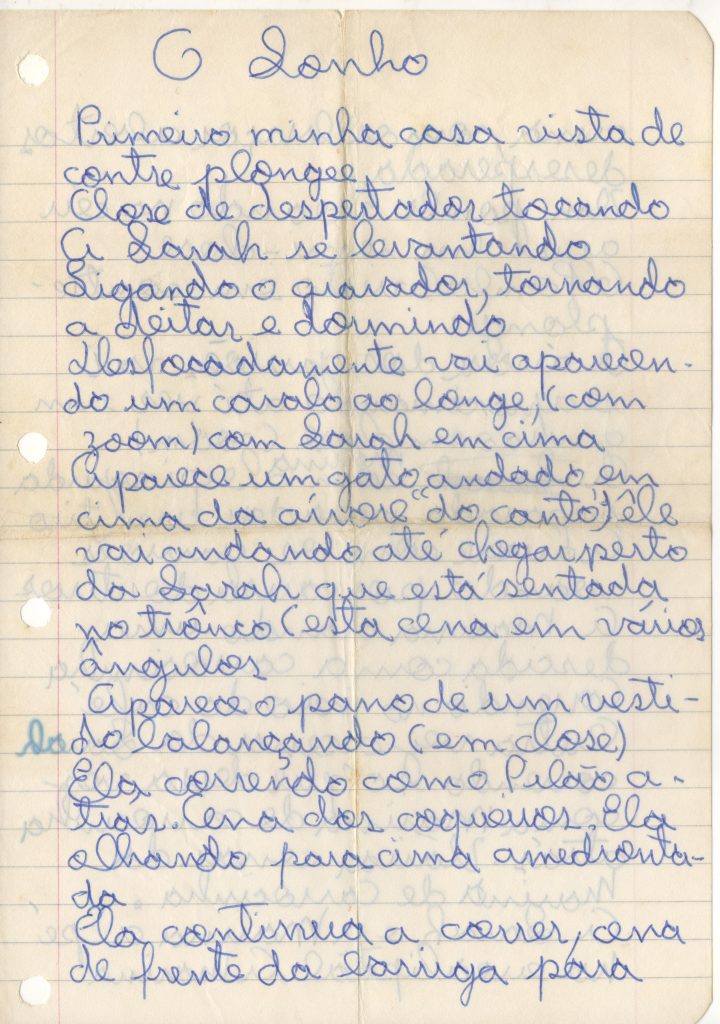 O Sonho
Primeiro minha casa vista de
contre plongee,
Close de despertador tocando
A Sarah se levantando
Ligando o gravador, tornando
a deitar e dormindo
Desfocadamente vai aparecen-
do um cavalo ao longe, (com
zoom) com Sarah em cima
Aparece um gato andado em
cima da árvore "do canto" êle
vai andando até chegar perto
da Sarah que está sentada
no trônco (esta cena em vários
ângulos
Aparece o pano de um vesti-
do balançando (em close)
Ela correndo com o Pilão a-
trás. Cena dos coqueiros. Ela
olhando para cima amedronta-
da
Ela continua a correr, cena
de frente da barriga para